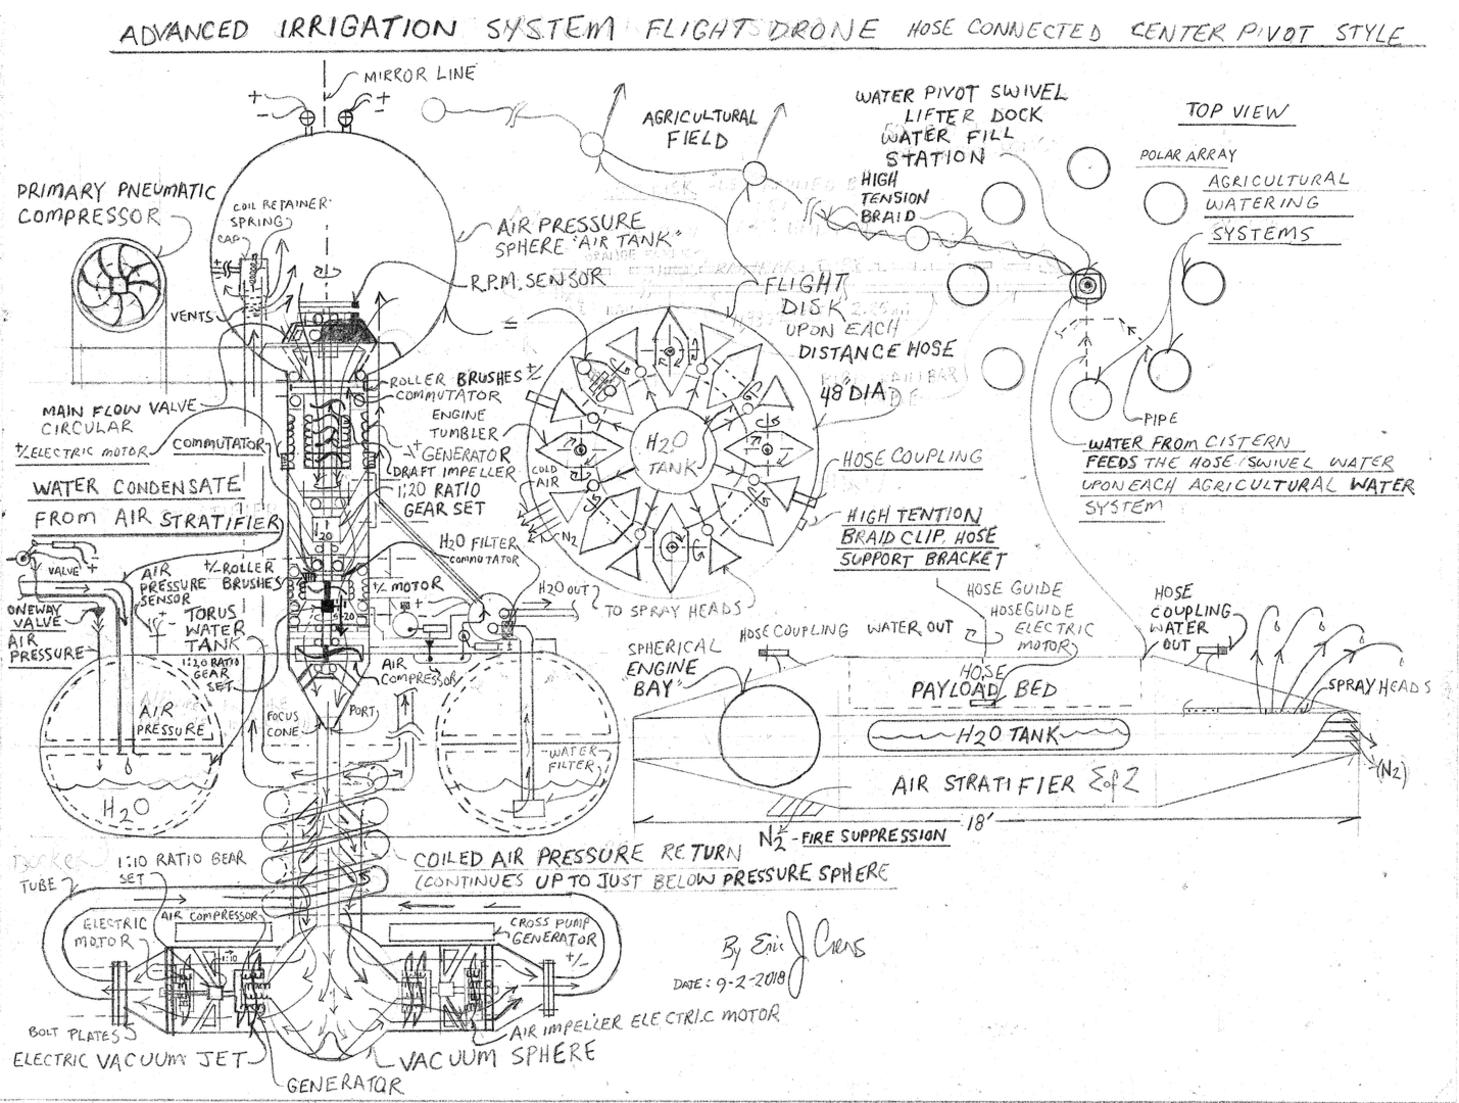 ADVANCED IRRIGATION SYSTEM FLIGHT DRONE HOSE CONNECTED CENTER PIVOT STYLE
MIRROR LINE
+ -
+ -
PRIMARY PNEUMATIC
COMPRESSOR
COIL RETAINER
SPRING
CAP
VENTS
AIR PRESSURE
SPHERE "AIR TANK"
R.P.M. SENSOR
MAIN FLOW VALVE
CIRCULAR
+/- ELECTRIC MOTOR
COMMUTATOR
WATER CONDENSATE
FROM AIR STRATIFIER
ROLLER BRUSHES +/-
COMMUTATOR
ENGINE
TUMBLER
+/- GENERATOR
DRAFT IMPELLER
1:20 RATIO
GEAR SET
AGRICULTURAL
FIELD
WATER PIVOT SWIVEL
LIFTER DOCK
WATER FILL
STATION
HIGH
TENSION
BRAID
TOP VIEW
POLAR ARRAY
AGRICULTURAL
WATERING
SYSTEMS
FLIGHT
DISK
UPON EACH
DISTANCE HOSE
48" DIA
H2O
TANK
COLD
AIR
N2
HOSE COUPLING
HIGH TENTION
BRAID CLIP, HOSE
SUPPORT BRACKET
TO SPRAY HEADS
PIPE
WATER FROM CISTERN
FEEDS THE HOSE/SWIVEL WATER
UPON EACH AGRICULTURAL WATER
SYSTEM
VALVE
ONEWAY
VALVE
AIR
PRESSURE
AIR
PRESSURE
SENSOR
+/- ROLLER
BRUSHES
TORUS
WATER
TANK
1:20 RATIO
GEAR
SET
H2O FILTER
COMMUTATOR
+/- MOTOR
H2O OUT
AIR
COMPRESSOR
AIR
PRESSURE
H2O
FOCUS
CONE
PORT
WATER
FILTER
SPHERICAL
ENGINE
BAY
HOSE COUPLING
WATER OUT
HOSE GUIDE
HOSEGUIDE
ELECTRIC
MOTOR
HOSE
COUPLING
WATER
OUT
HOSE
PAYLOAD BED
SPRAY HEADS
H2O TANK
AIR STRATIFIER Σof2
(N2)
18'
N2 - FIRE SUPPRESSION
COILED AIR PRESSURE RETURN
(CONTINUES UP TO JUST BELOW PRESSURE SPHERE
1:10 RATIO GEAR
SET
TUBE
ELECTRIC
MOTOR
AIR COMPRESSOR
1:10
CROSS PUMP
GENERATOR
+/-
BOLT PLATES
ELECTRIC VACUUM JET
GENERATOR
VACUUM SPHERE
AIR IMPELLER ELECTRIC MOTOR
By Eric J
DATE: 9-2-2018